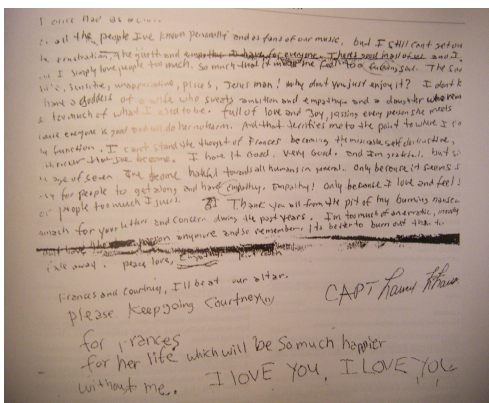 all the people I've known personally and as fans of our music, but I still can't get over
the frustration, the guilt and empathy I have for everyone. There's good in all of us and I
I simply love people too much. so much that it makes me feel too fucking sad. The sad
little, sensitive, unappreciative, pisces, Jesus man! why don't you just enjoy it? I don't k
have a goddess of a wife who sweats ambition and empathy. and a daughter who
too much of what I used to be. full of love and joy, kissing every person she meets
everyone is good and will do her no harm. And that terrifies me to the point to where I ca
function. I can't stand the thought of Frances becoming the miserable self destructive,
I've become. I have it Good. very Good. and I'm grateful, but si
age of seven I've become hateful towards all humans in general. Only because it seems s
for people to get along and have empathy. Empathy! Only because I love and feel s
people too much I guess. Thank you all from the pit of my burning nause
for your letters and concern during the past years. I'm too much of an erratic, moody
person anymore and so remember, its better to burn out than to
fade away. peace, love, Empathy.
Frances and Courtney, I'll be at our altar.
please Keep going Courtney
for Frances
for her life which will be so much happier
without me. I LOVE YOU. I LOVE YOU